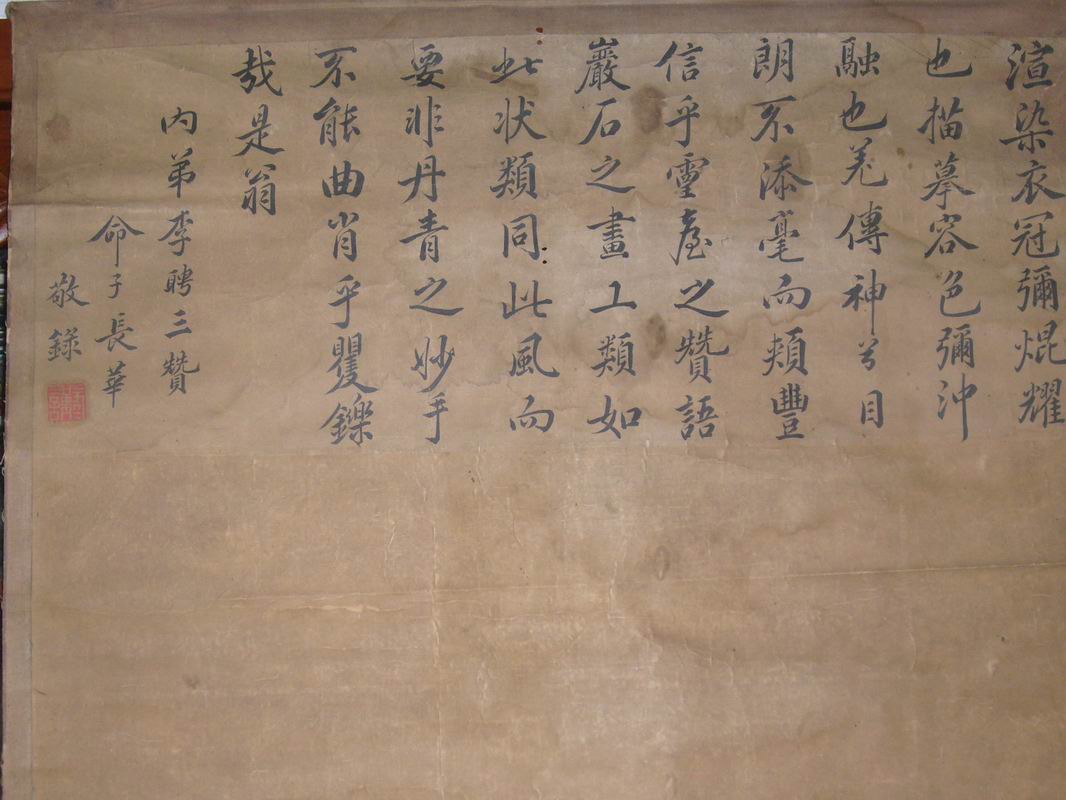 渲染衣冠彌焜耀
也描摹容色彌沖
融也羌傳神兮目
朗不添毫而頰豐
信乎靈臺之贊語
巖石之畫工類如
此状類同此風而
要非丹青之妙手
不能曲肖乎矍鑠
哉是翁
内弟李聘三贊
命子長華
敬錄